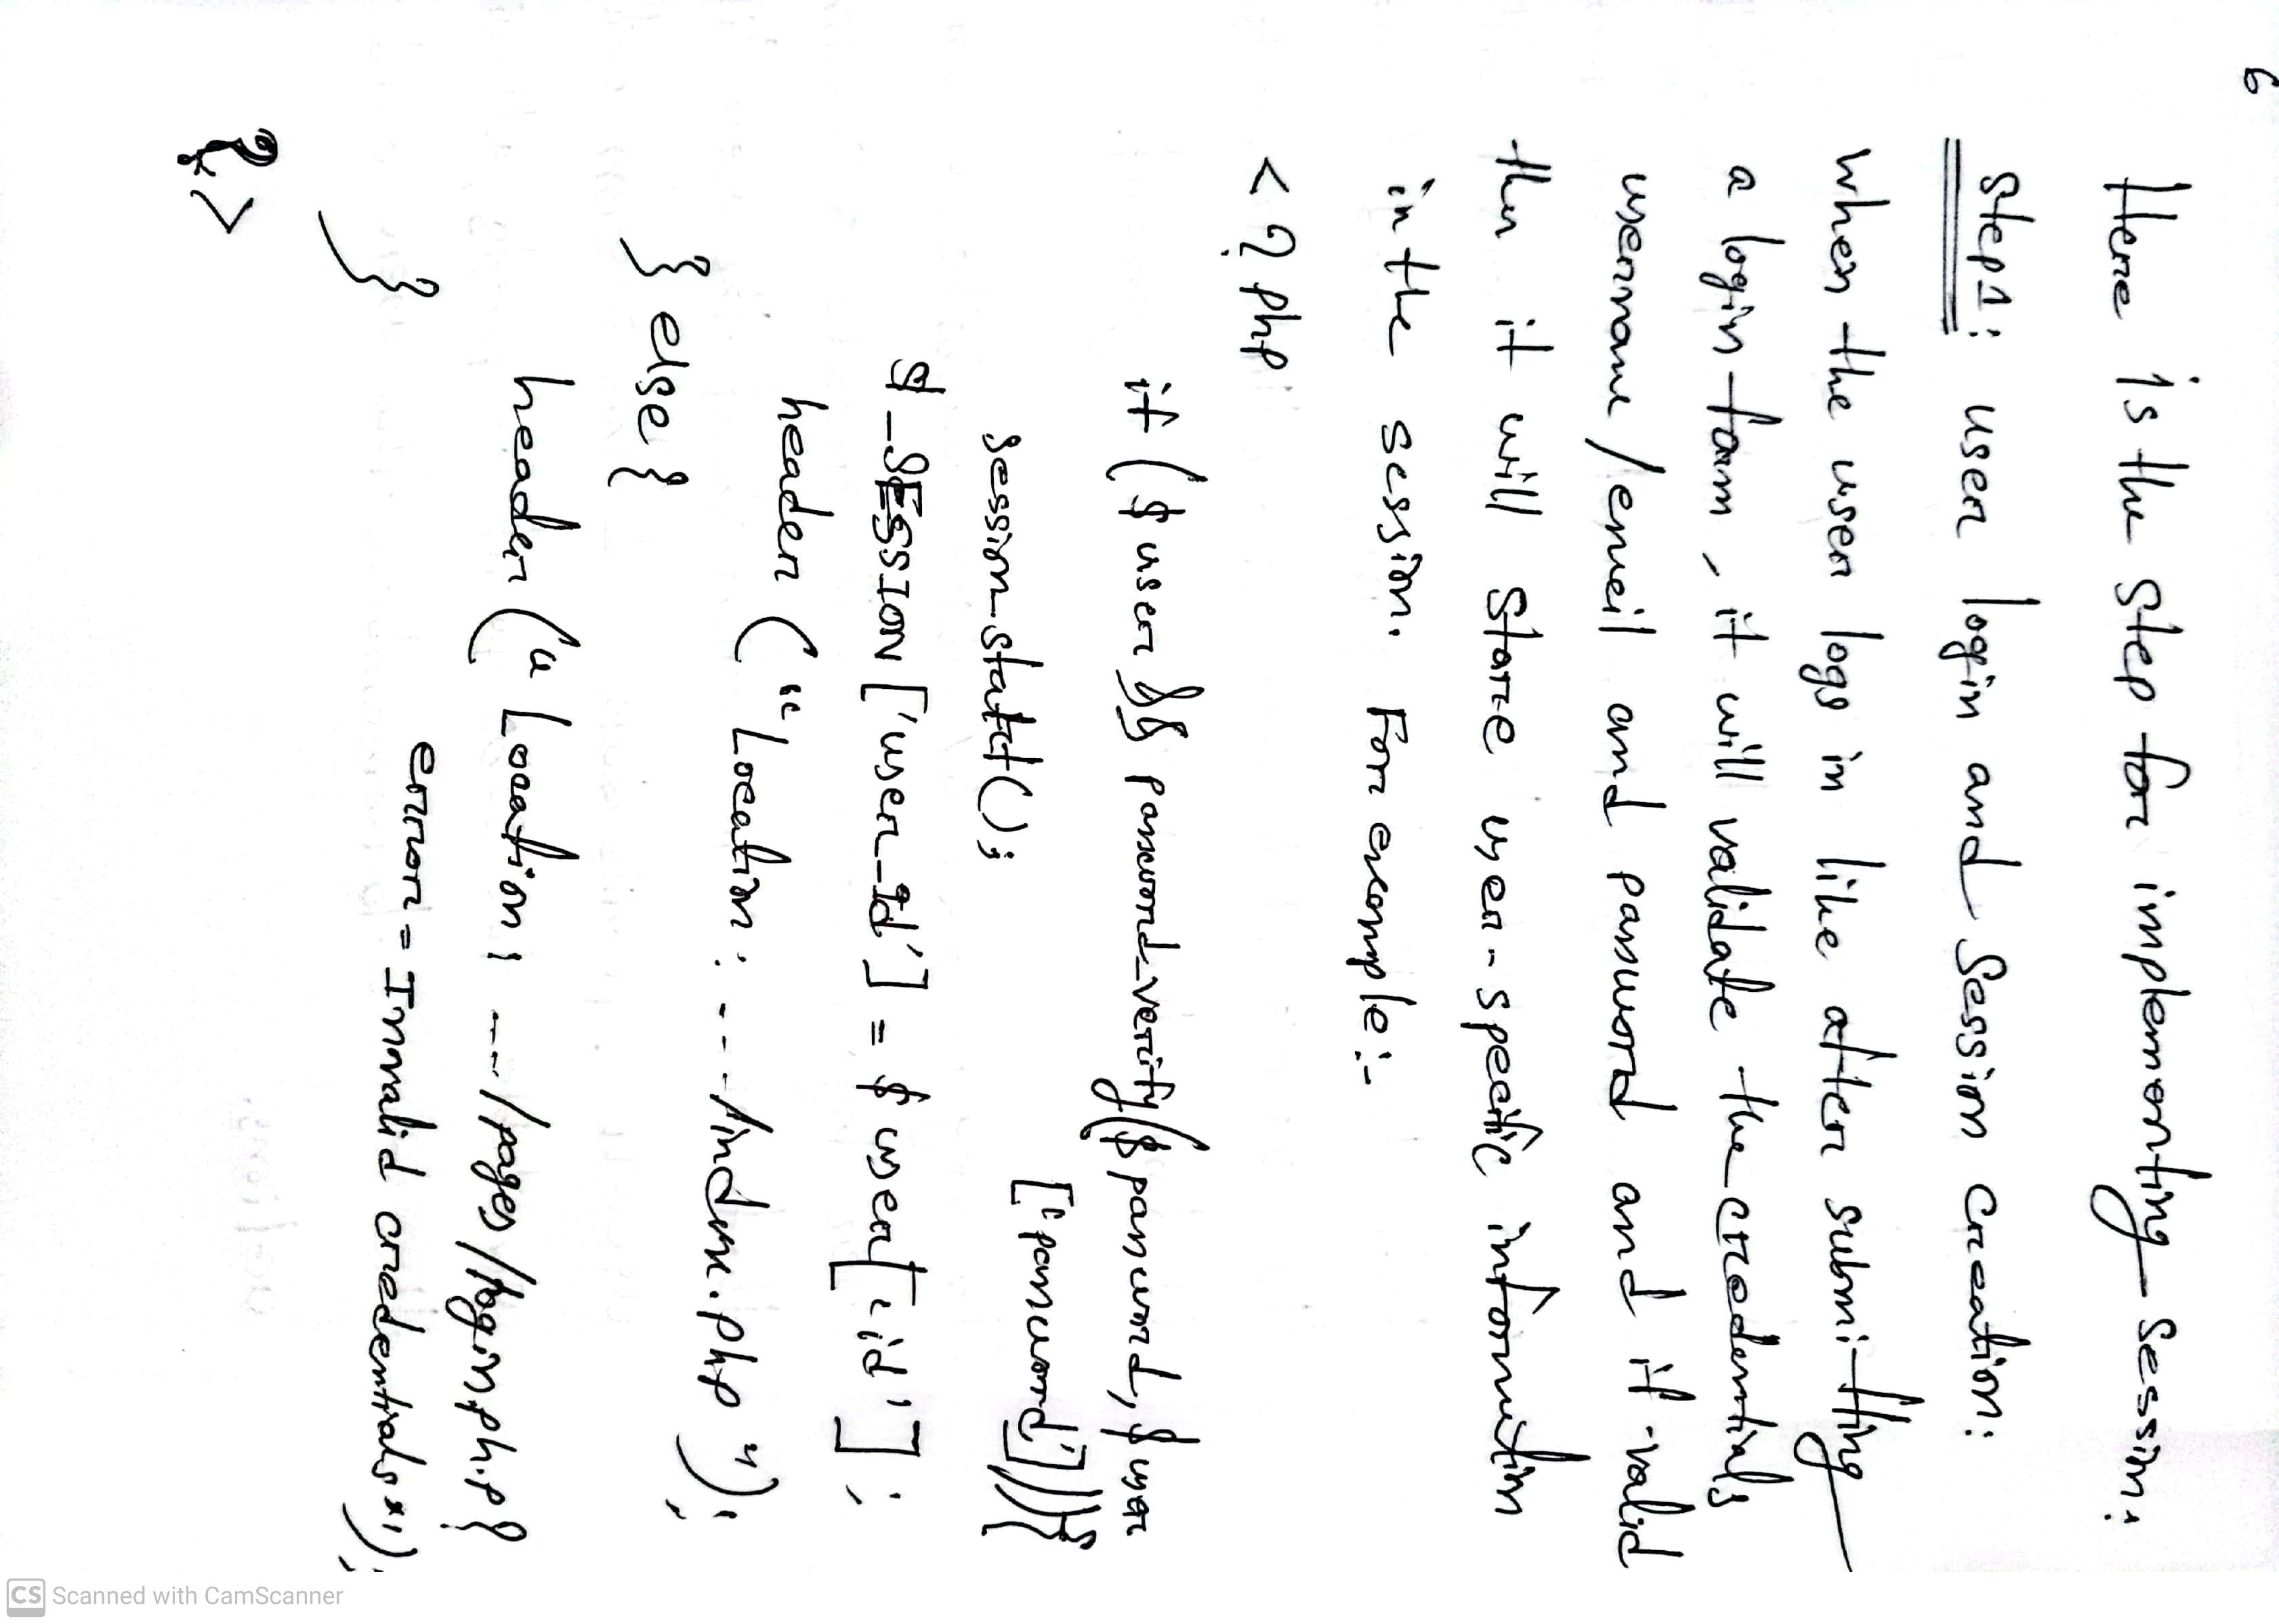 6
Here is the step for implementing session:
Step 1: user login and Session creation:
when the user logs in like after submitting
a login form, it will validate the credentials
username/email and password and if valid
then it will store user-specific information
in the session. For example:-
<?php
if ($user && password_verify($password, $user
['password'])){
session_start();
$_SESSION['user_id'] = $user['id'];
header("Location: ../index.php");
} else {
header("Location: ../pages/login.php?
error=Invalid credentials");
}
?>
CS Scanned with CamScanner